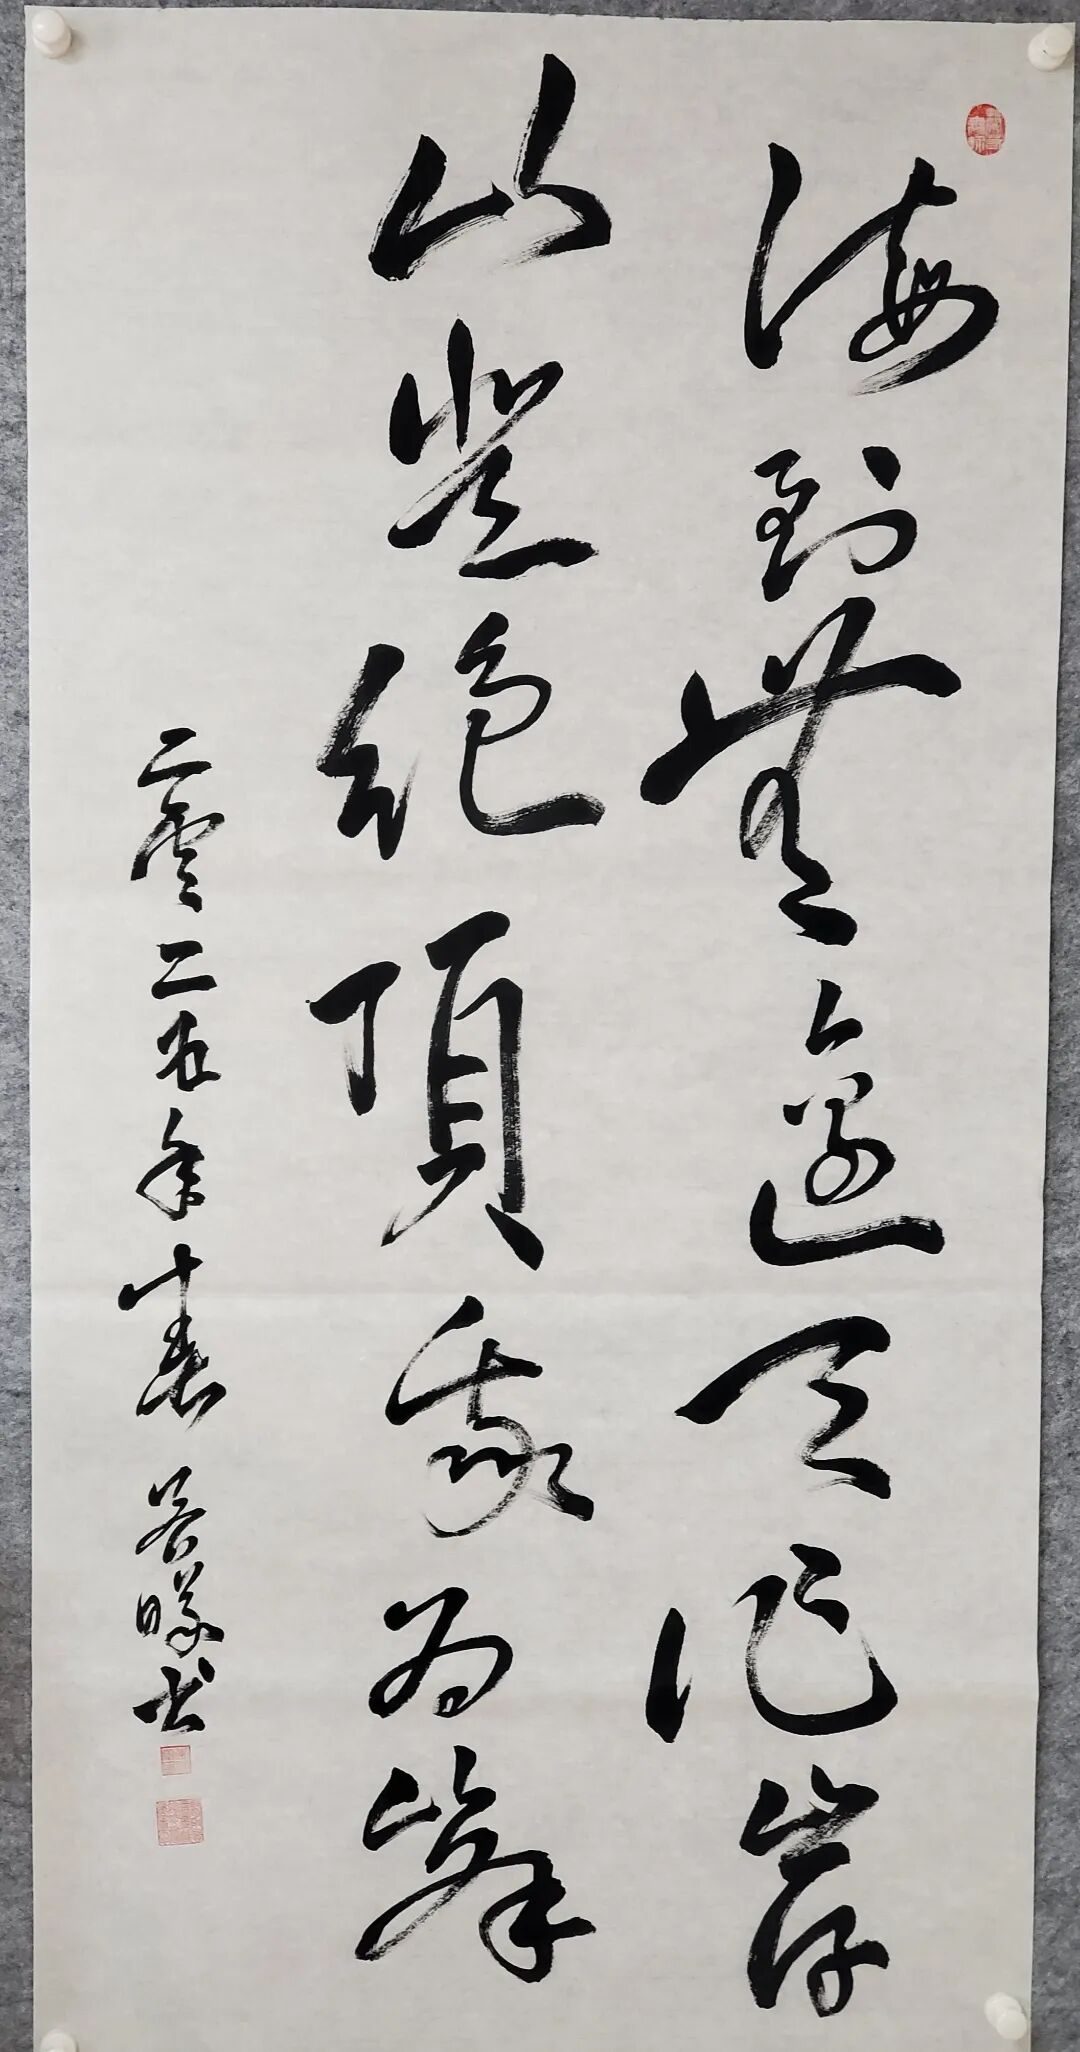 海到無邊天作岸
山登絕頂我為峰
二零二五年春 若曦书